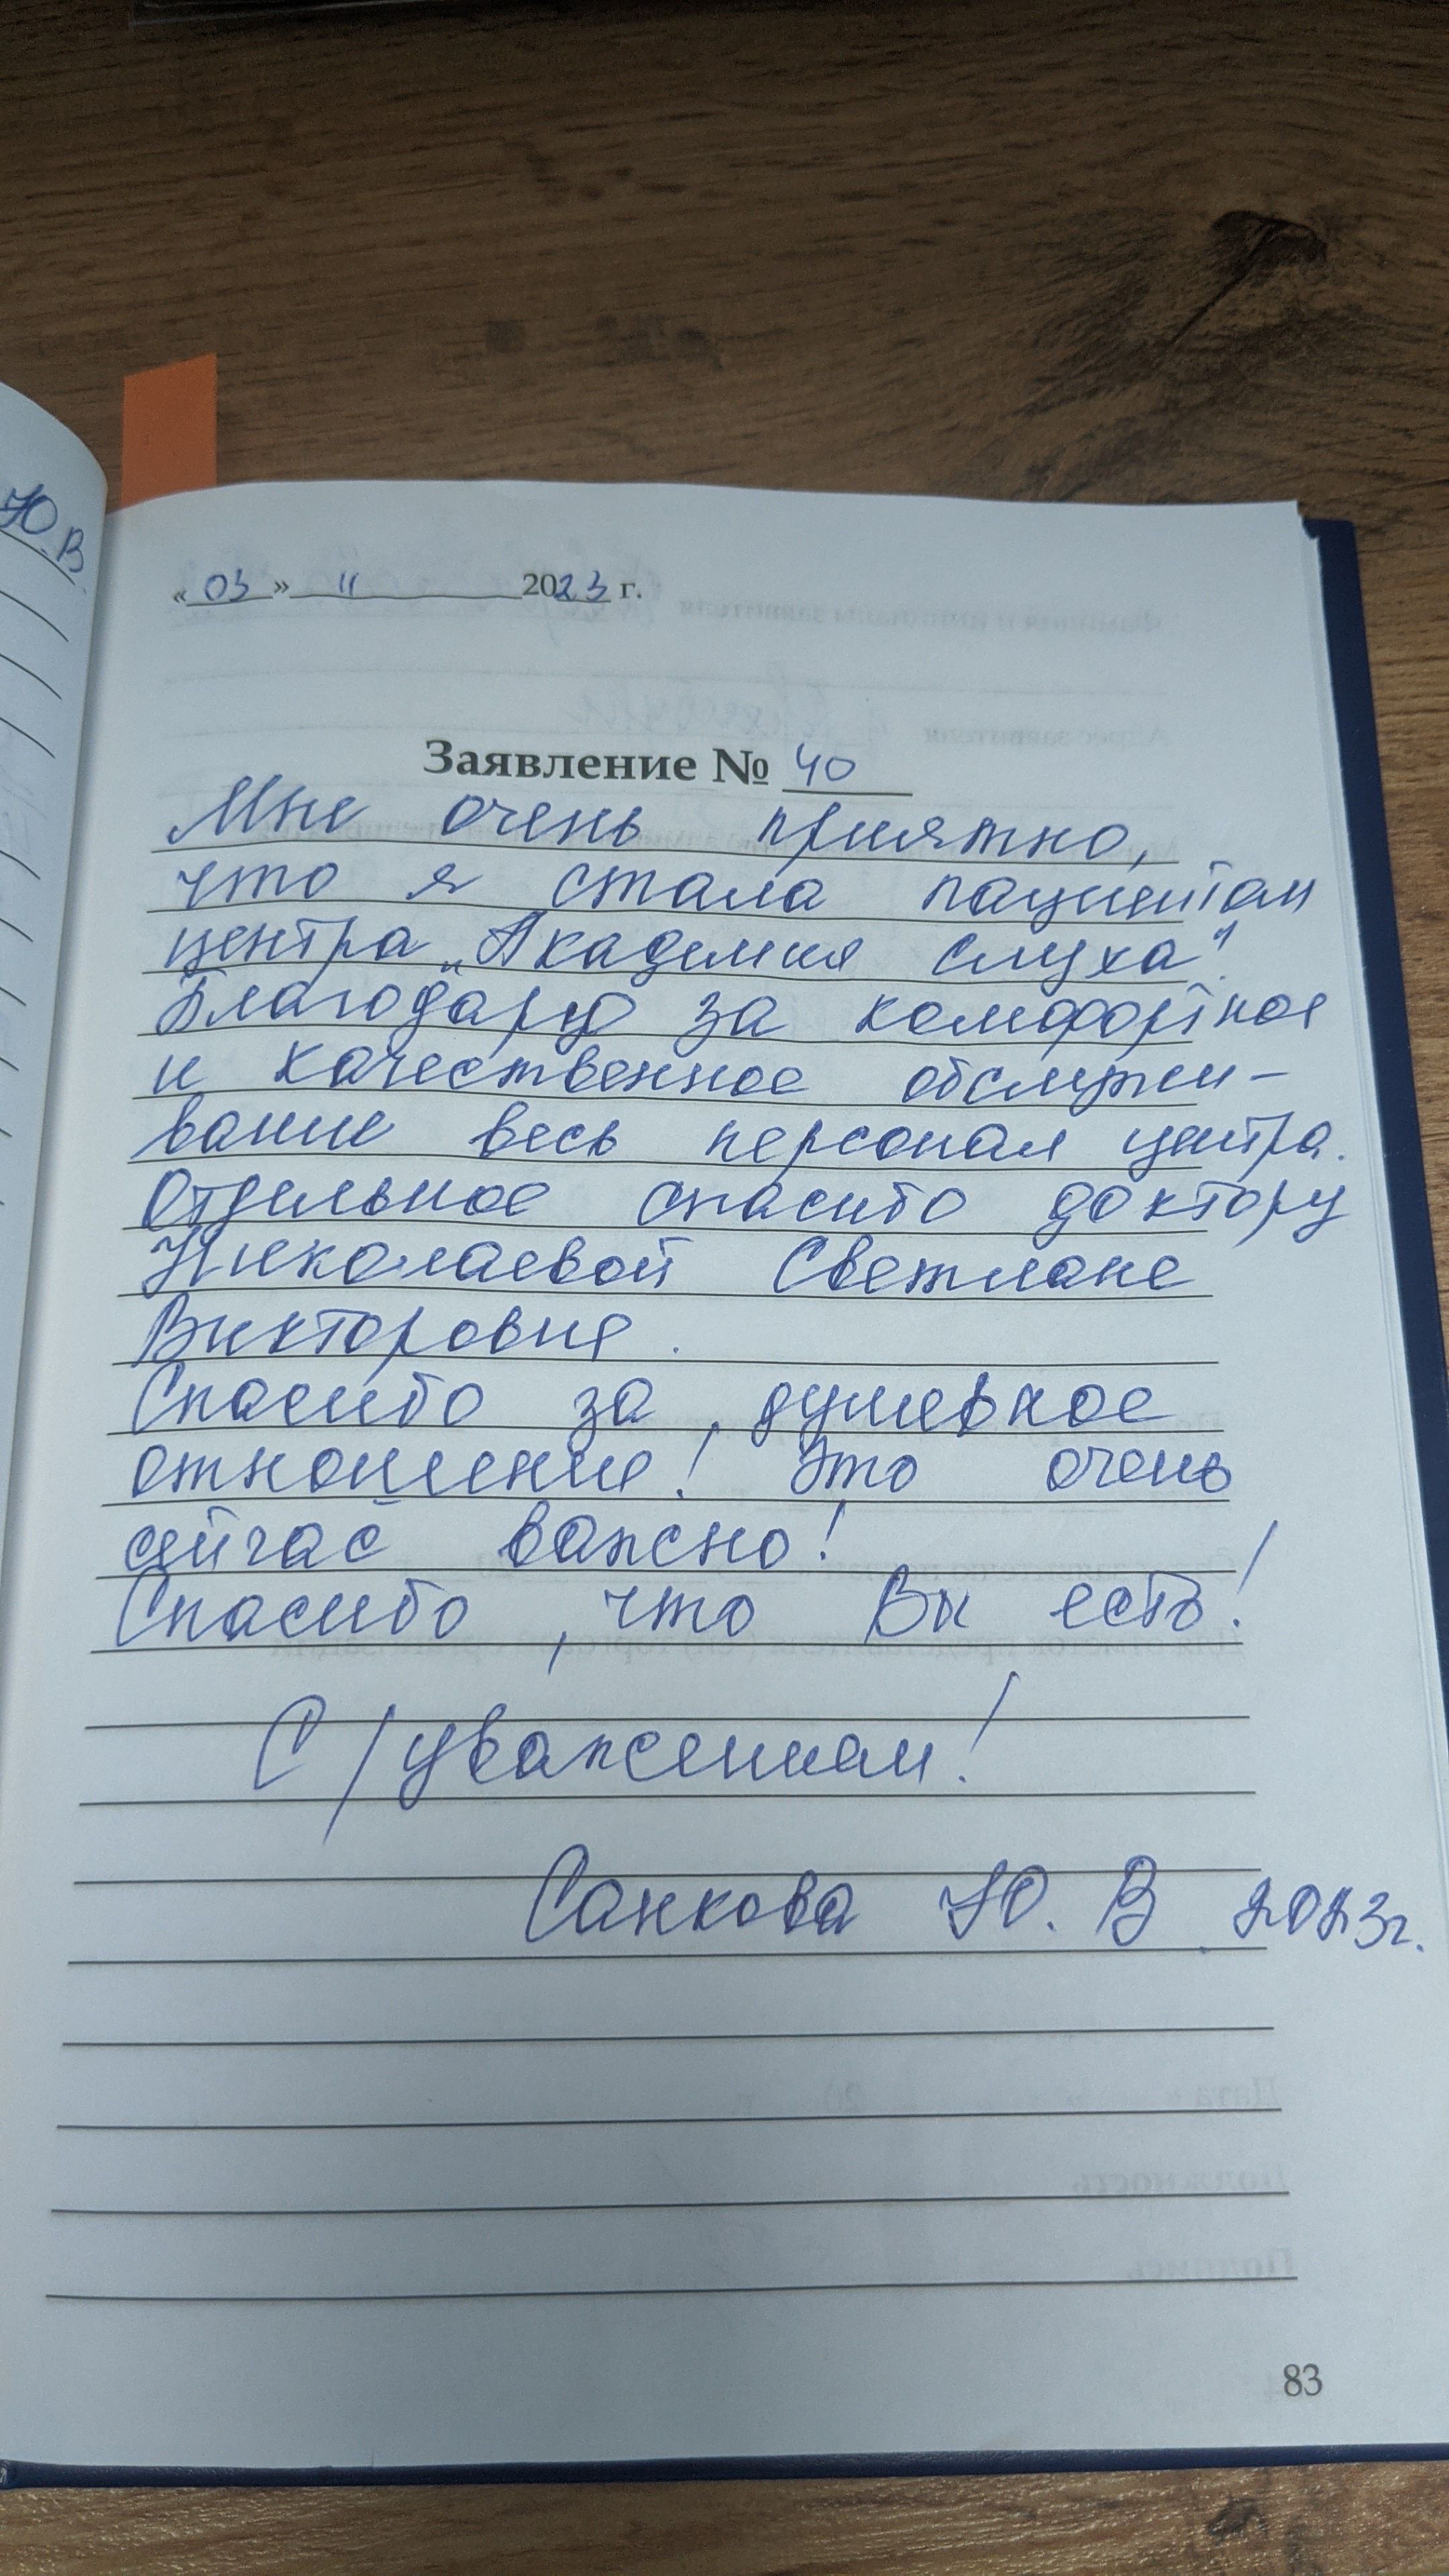 Ю.В
«03» 11 2023 г.
Заявление № 40
Мне очень приятно,
что я стала пациентом
центра „Академия слуха".
Благодарю за комфортное
и качественное обслужи-
вание весь персонал центра.
Отдельное спасибо доктору
Николаевой Светлане
Викторовне.
Спасибо за душевное
отношение! Это очень
сейчас важно!
Спасибо, что Вы есть!
С/уважением!
Санкова Ю. В. 2023г.
83